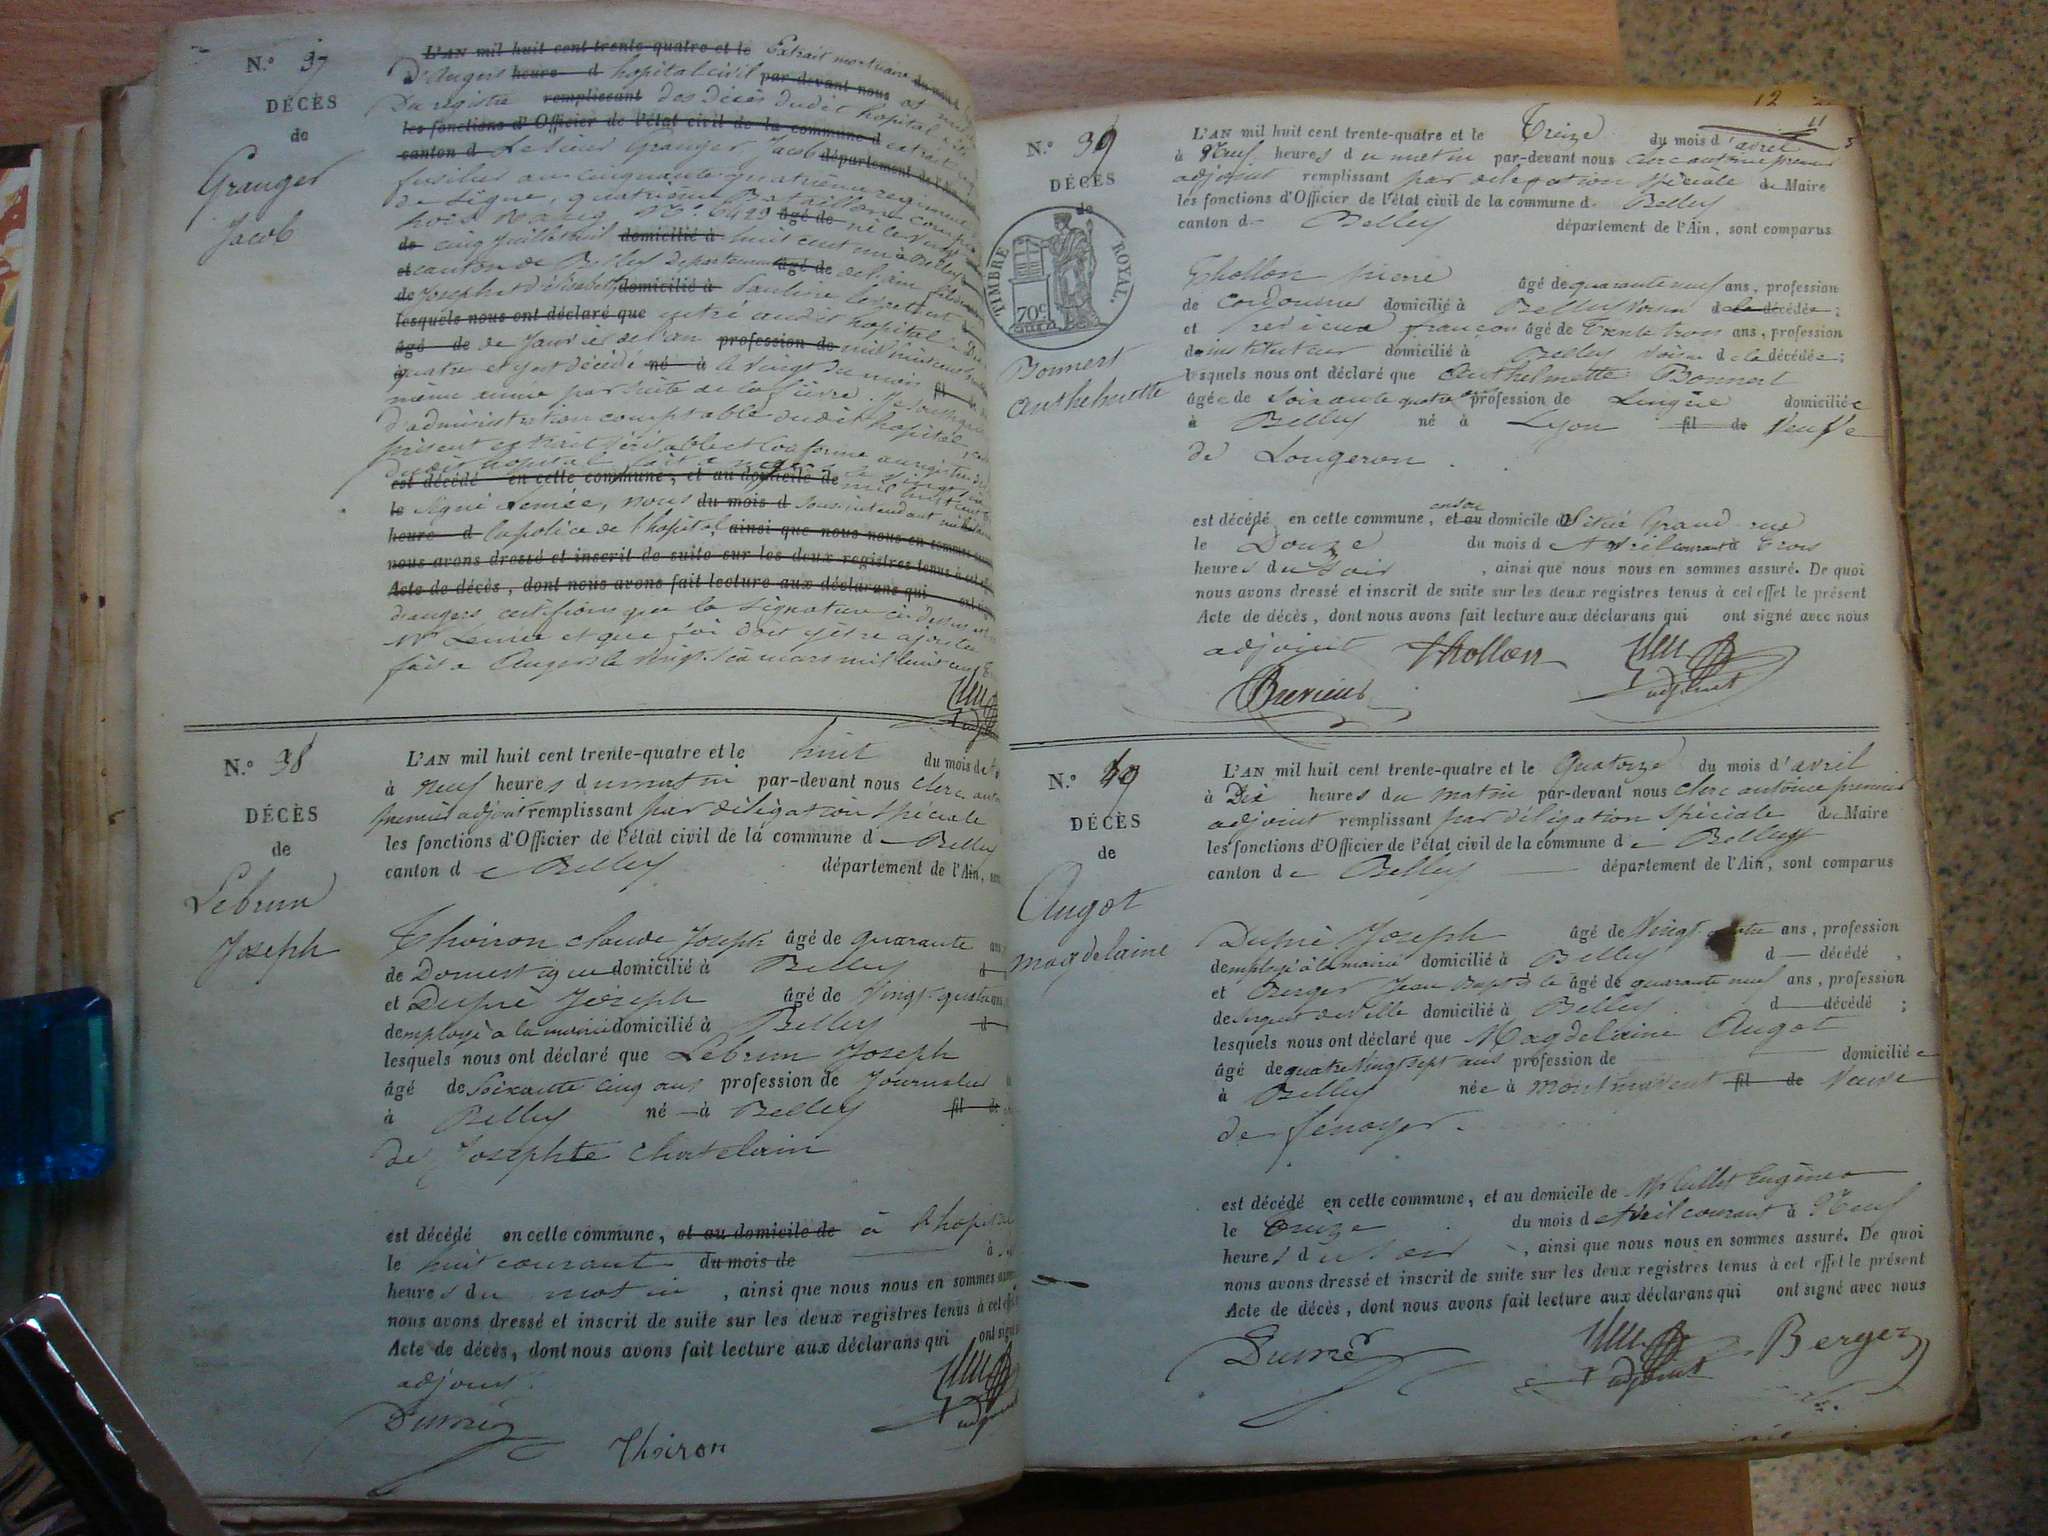 N.º 37
DÉCÈS
de
Granger
Jacob
L'AN mil huit cent trente-quatre et le Extrait mortuaire
d'Angers heure d hopital civil par devant nous
du registre remplissant des décès dudit hopital
les fonctions d'Officier de l'état civil de la commune d extrait
canton d Le sieur Granger Jacob département de l'Ain
fusilier au cinquante quatrième regiment
de ligne, quatrième Bataillon
hors rang Nº 6499 âgé de né le vingt
de cinq juillet mil domicilié à huit cent onze à Belley
et canton de Belley departement âgé de de l'ain fils
de Joseph et d'élisabeth domicilié à Pauline
lesquels nous ont déclaré que entré audit hopital le
âgé de de Janvier de l'an profession de mil huit cent trente
quatre et y est décédé né à le vingt du mois fil de
même année par suite de la fièvre. Je soussigné
d'administration comptable dudit hopital,
présent extrait véritable et conforme au registre
dudit hopital fait a
est décédé en cette commune, et au domicile de mil huit cent
le Signé Lemée, nous du mois d sous intendant
heure d la police de l'hopital ainsi que nous nous en sommes
nous avons dressé et inscrit de suite sur les deux registres tenus à cet
Acte de décès, dont nous avons fait lecture aux déclarans qui ont
d'angers certifions que la signature ci dessus est
Mr Lemée et que foi doit y être ajoutée
fait a Angers le vingt six mars mil huit cent
N.º 38
DÉCÈS
de
Lebrun
Joseph
L'AN mil huit cent trente-quatre et le huit du mois d
à neuf heures du matin par-devant nous Clerc
premier adjoint remplissant par délégation spéciale
les fonctions d'Officier de l'état civil de la commune de Belley
canton de Belley département de l'Ain,
Thoiron claude Joseph âgé de quarante ans
de Domestique domicilié à Belley d
et Dupré Joseph âgé de vingt quatre ans
de employé a la mairie domicilié à Belley d
lesquels nous ont déclaré que Lebrun Joseph
âgé de soixante cinq ans profession de Journalier
à Belley né à Belley fil de
de Josephte Chatelain
est décédé en cette commune, et au domicile de à l'hopital
le huit courant du mois de à
heures du matin, ainsi que nous nous en sommes
nous avons dressé et inscrit de suite sur les deux registres tenus à cet
Acte de décès, dont nous avons fait lecture aux déclarans qui ont
adjoint.
Dupré
Thoiron
adjoint
12
11
N.º 39
DÉCÈS
de
TIMBRE ROYAL.
70c
Bonnert
anthelmette
L'AN mil huit cent trente-quatre et le Treize du mois d'avril
à Neuf heures du matin par-devant nous Clerc antoine premier
adjoint remplissant par délégation spéciale de Maire
les fonctions d'Officier de l'état civil de la commune de Belley
canton de Belley département de l'Ain, sont comparus
Thollon pierre âgé de quarante neuf ans, profession
de cordonnier domicilié à Belley voisin de la décédée;
et Brevieux françois âgé de trente trois ans, profession
de instituteur domicilié à Belley voisin de la décédée;
lesquels nous ont déclaré que anthelmette Bonnert
âgée de soixante quatre ans profession de Lingère domiciliée
à Belley né à Lyon fil de Veuve
de Lougeron.
est décédé en cette commune, et au domicile situé Grand rue
le Douze du mois d Avril courant à trois
heures du soir, ainsi que nous nous en sommes assuré. De quoi
nous avons dressé et inscrit de suite sur les deux registres tenus à cet effet le présent
Acte de décès, dont nous avons fait lecture aux déclarans qui ont signé avec nous
adjoint Thollon
Brevieux adjoint
N.º 40
DÉCÈS
de
Augot
magdelaine
L'AN mil huit cent trente-quatre et le Quatorze du mois d'avril
à Dix heures du matin par-devant nous Clerc antoine premier
adjoint remplissant par délégation spéciale de Maire
les fonctions d'Officier de l'état civil de la commune de Belley
canton de Belley département de l'Ain, sont comparus
Dupré Joseph âgé de Vingt quatre ans, profession
de employé à la mairie domicilié à Belley d décédé,
et Berger Jean Baptiste âgé de quarante neuf ans, profession
de sergent de Ville domicilié à Belley d décédé;
lesquels nous ont déclaré que Magdelaine Augot
âgé de quatre Vingt sept ans profession de domiciliée
à Belley née à fil de Veuve
de fenoyer.
est décédé en cette commune, et au domicile de Mr Cullet Eugène
le treize du mois d Avril courant à Neuf
heures du soir, ainsi que nous nous en sommes assuré. De quoi
nous avons dressé et inscrit de suite sur les deux registres tenus à cet effet le présent
Acte de décès, dont nous avons fait lecture aux déclarans qui ont signé avec nous
Dupré adjoint Berger